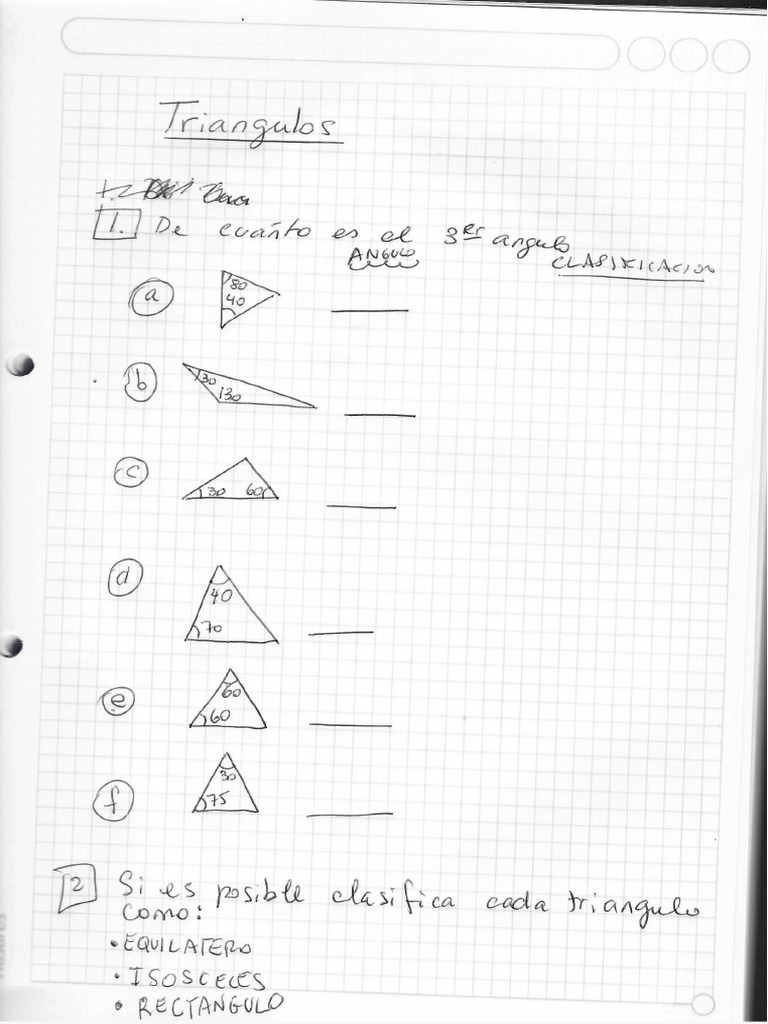 Triangulos
1. De cuánto es el 3er angulo
ANGULO
CLASIFICACION
a 80
40
b 30
130
c 30 60
d 40
70
e 60
60
f 30
75
2 Si es posible clasifica cada triangulo
como:
• EQUILATERO
• ISOSCELES
• RECTANGULO